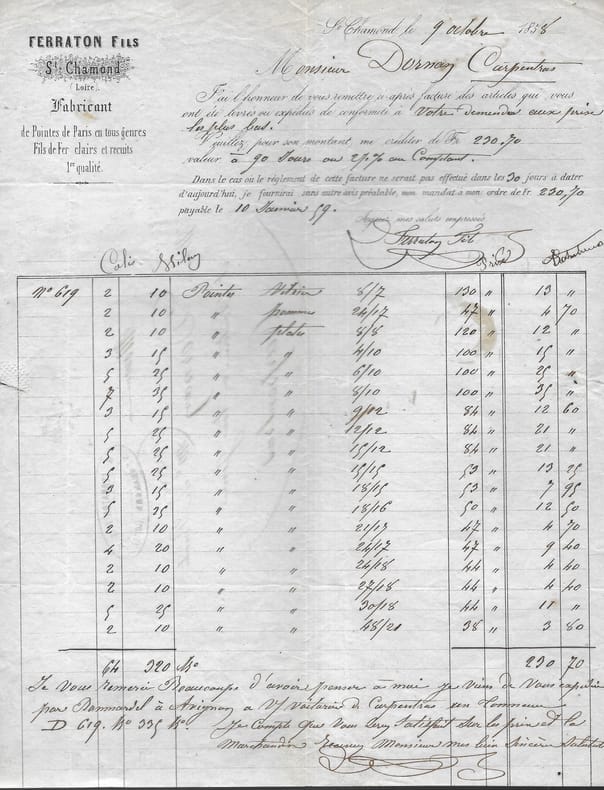 St Chamond le 9 octobre 1858
FERRATON FILS
St Chamond
(Loire).
Fabricant
de Pointes de Paris en tous genres
Fils de Fer clairs et recuits
1re qualité.
Monsieur Dornay Carpentras
J'ai l'honneur de vous remettre ci-après facture des articles que vous
ont été livrés ou expédiés de conformité à Votre demende aux prix
les plus bas.
Veuillez pour son montant, me créditer de Fr. 230.70
valeur à 90 Jours ou 2 % au Comptant.
Dans le cas ou le règlement de cette facture ne serait pas effectué dans les 30 jours à dater
d'aujourd'hui, je fournirai sans autre avis préalable, mon mandat à mon ordre de Fr. 230,70
payable le 10 Janvier 59.
Agréez mes saluts empressés
Ferraton Fils
Colis Kilog Prix
No 619 2 10 Pointes 8/7 130 " 13 "
2 10 " 24/17 47 " 4 70
2 10 " plates 8/8 120 " 12 "
3 15 " " 4/10 100 " 15 "
5 25 " " 6/10 100 " 25 "
7 35 " " 8/10 100 " 35 "
3 15 " " 9/12 84 " 12 60
5 25 " " 12/12 84 " 21 "
5 25 " " 15/12 84 " 21 "
5 25 " " 15/15 53 " 13 25
3 15 " " 18/15 53 " 7 95
5 25 " " 18/16 50 " 12 50
2 10 " " 21/17 47 " 4 70
4 20 " " 24/17 47 " 9 40
2 10 " " 24/18 44 " 4 40
2 10 " " 27/18 44 " 4 40
5 25 " " 30/18 44 " 11 "
2 10 " " 48/21 38 " 3 80
64 320 Ko 230 70
Je vous remerci Beaucoupe d'avoir penser à moi je viens de Vous expédier
par à Avignon a Vr Voiturier de Carpentras un Tonneau
D 619. Ko 335 Ko. Je Compte que Vous Serez Satisfait Sur le prix et la
Marchandise Recevez Monsieur mes bien Sincère Salutat